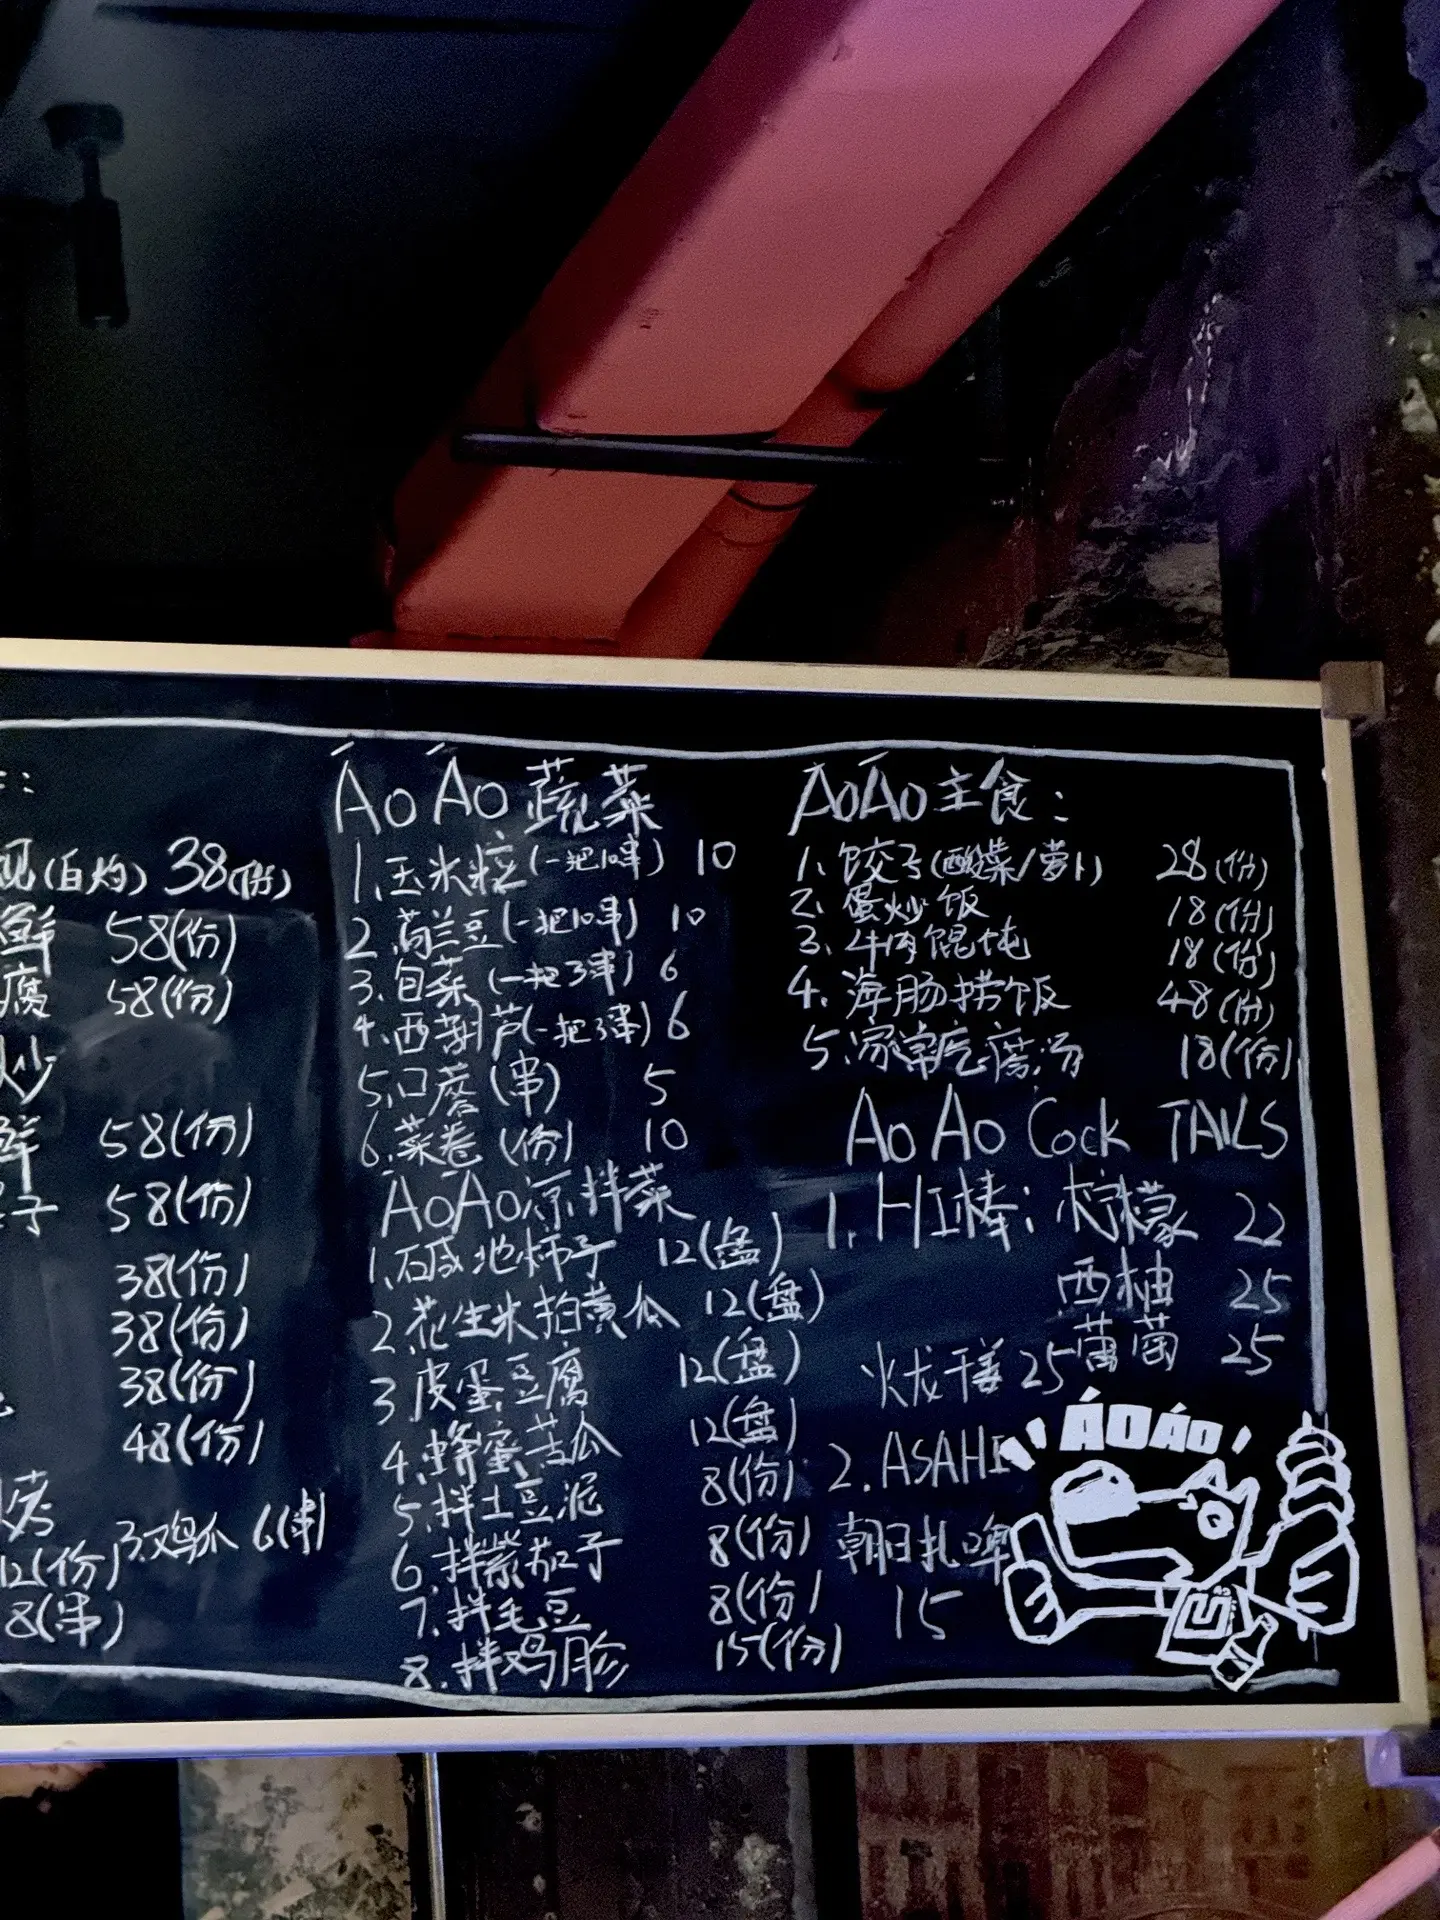 (白灼) 38(份)
鲜 58(份)
腐 58(份)
炒
鲜 58(份)
子 58(份)
38(份)
38(份)
38(份)
48(份)
烤
12(份) 3.鸡爪 6(串)
8(串)
ÁoÁo 蔬菜
1.玉米粒(一把10串) 10
2.荷兰豆(一把10串) 10
3.包菜(一把3串) 6
4.西葫芦(一把3串) 6
5.口蘑(串) 5
6.菜卷(份) 10
ÁoÁo凉拌菜
1.碱地柿子 12(盘)
2.花生米拍黄瓜 12(盘)
3.皮蛋豆腐 12(盘)
4.蜂蜜苦瓜 12(盘)
5.拌土豆泥 8(份)
6.拌紫茄子 8(份)
7.拌毛豆 8(份)
8.拌鸡胗 15(份)
ÁoÁo主食:
1.饺子(酸菜/萝卜) 28(份)
2.蛋炒饭 18(份)
3.牛肉馄饨 18(份)
4.海肠捞饭 48(份)
5.家常豆腐汤 18(份)
AoAo CockTAILS
1.HI棒: 柠檬 22
西柚 25
火龙干姜 25 葡萄 25
2.ASAHI
朝日扎啤
15
ÁOÁO